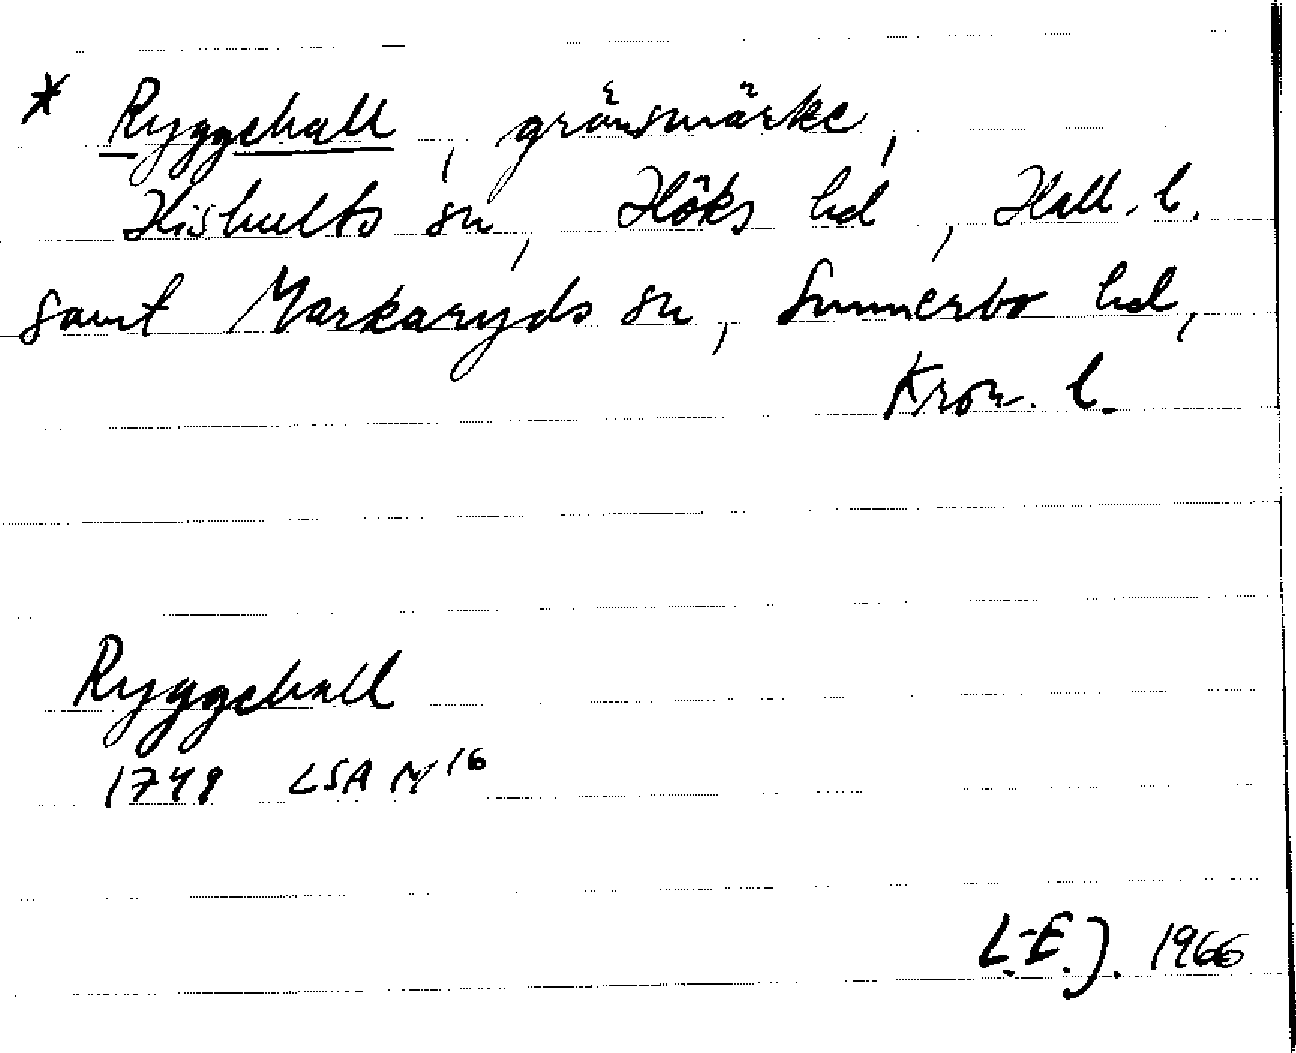 * Ryggehall, gränsmärke,
Hishults sn, Höks hd, Hall. l.
samt Markaryds sn, Sunnerbo hd,
Kron. l.
Ryggehall
1749 LSA N 16
L-E.J. 1966